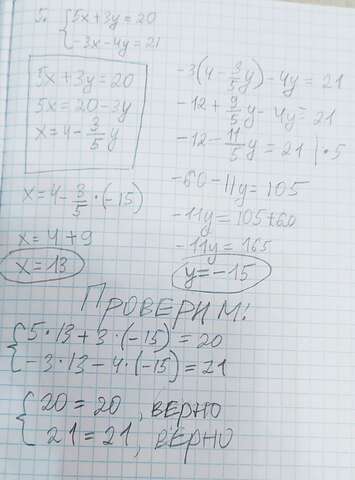 5. {5x+3y=20
{-3x-4y=21
5x+3y=20
5x=20-3y
x=4-3/5y
x=4-3/5·(-15)
x=4+9
x=13
-3(4-3/5y)-4y=21
-12+9/5y-4y=21
-12-11/5y=21 |·5
-60-11y=105
-11y=105+60
-11y=165
y=-15
ПРОВЕРИМ:
{5·13+3·(-15)=20
{-3·13-4·(-15)=21
{20=20, ВЕРНО
{21=21, ВЕРНО